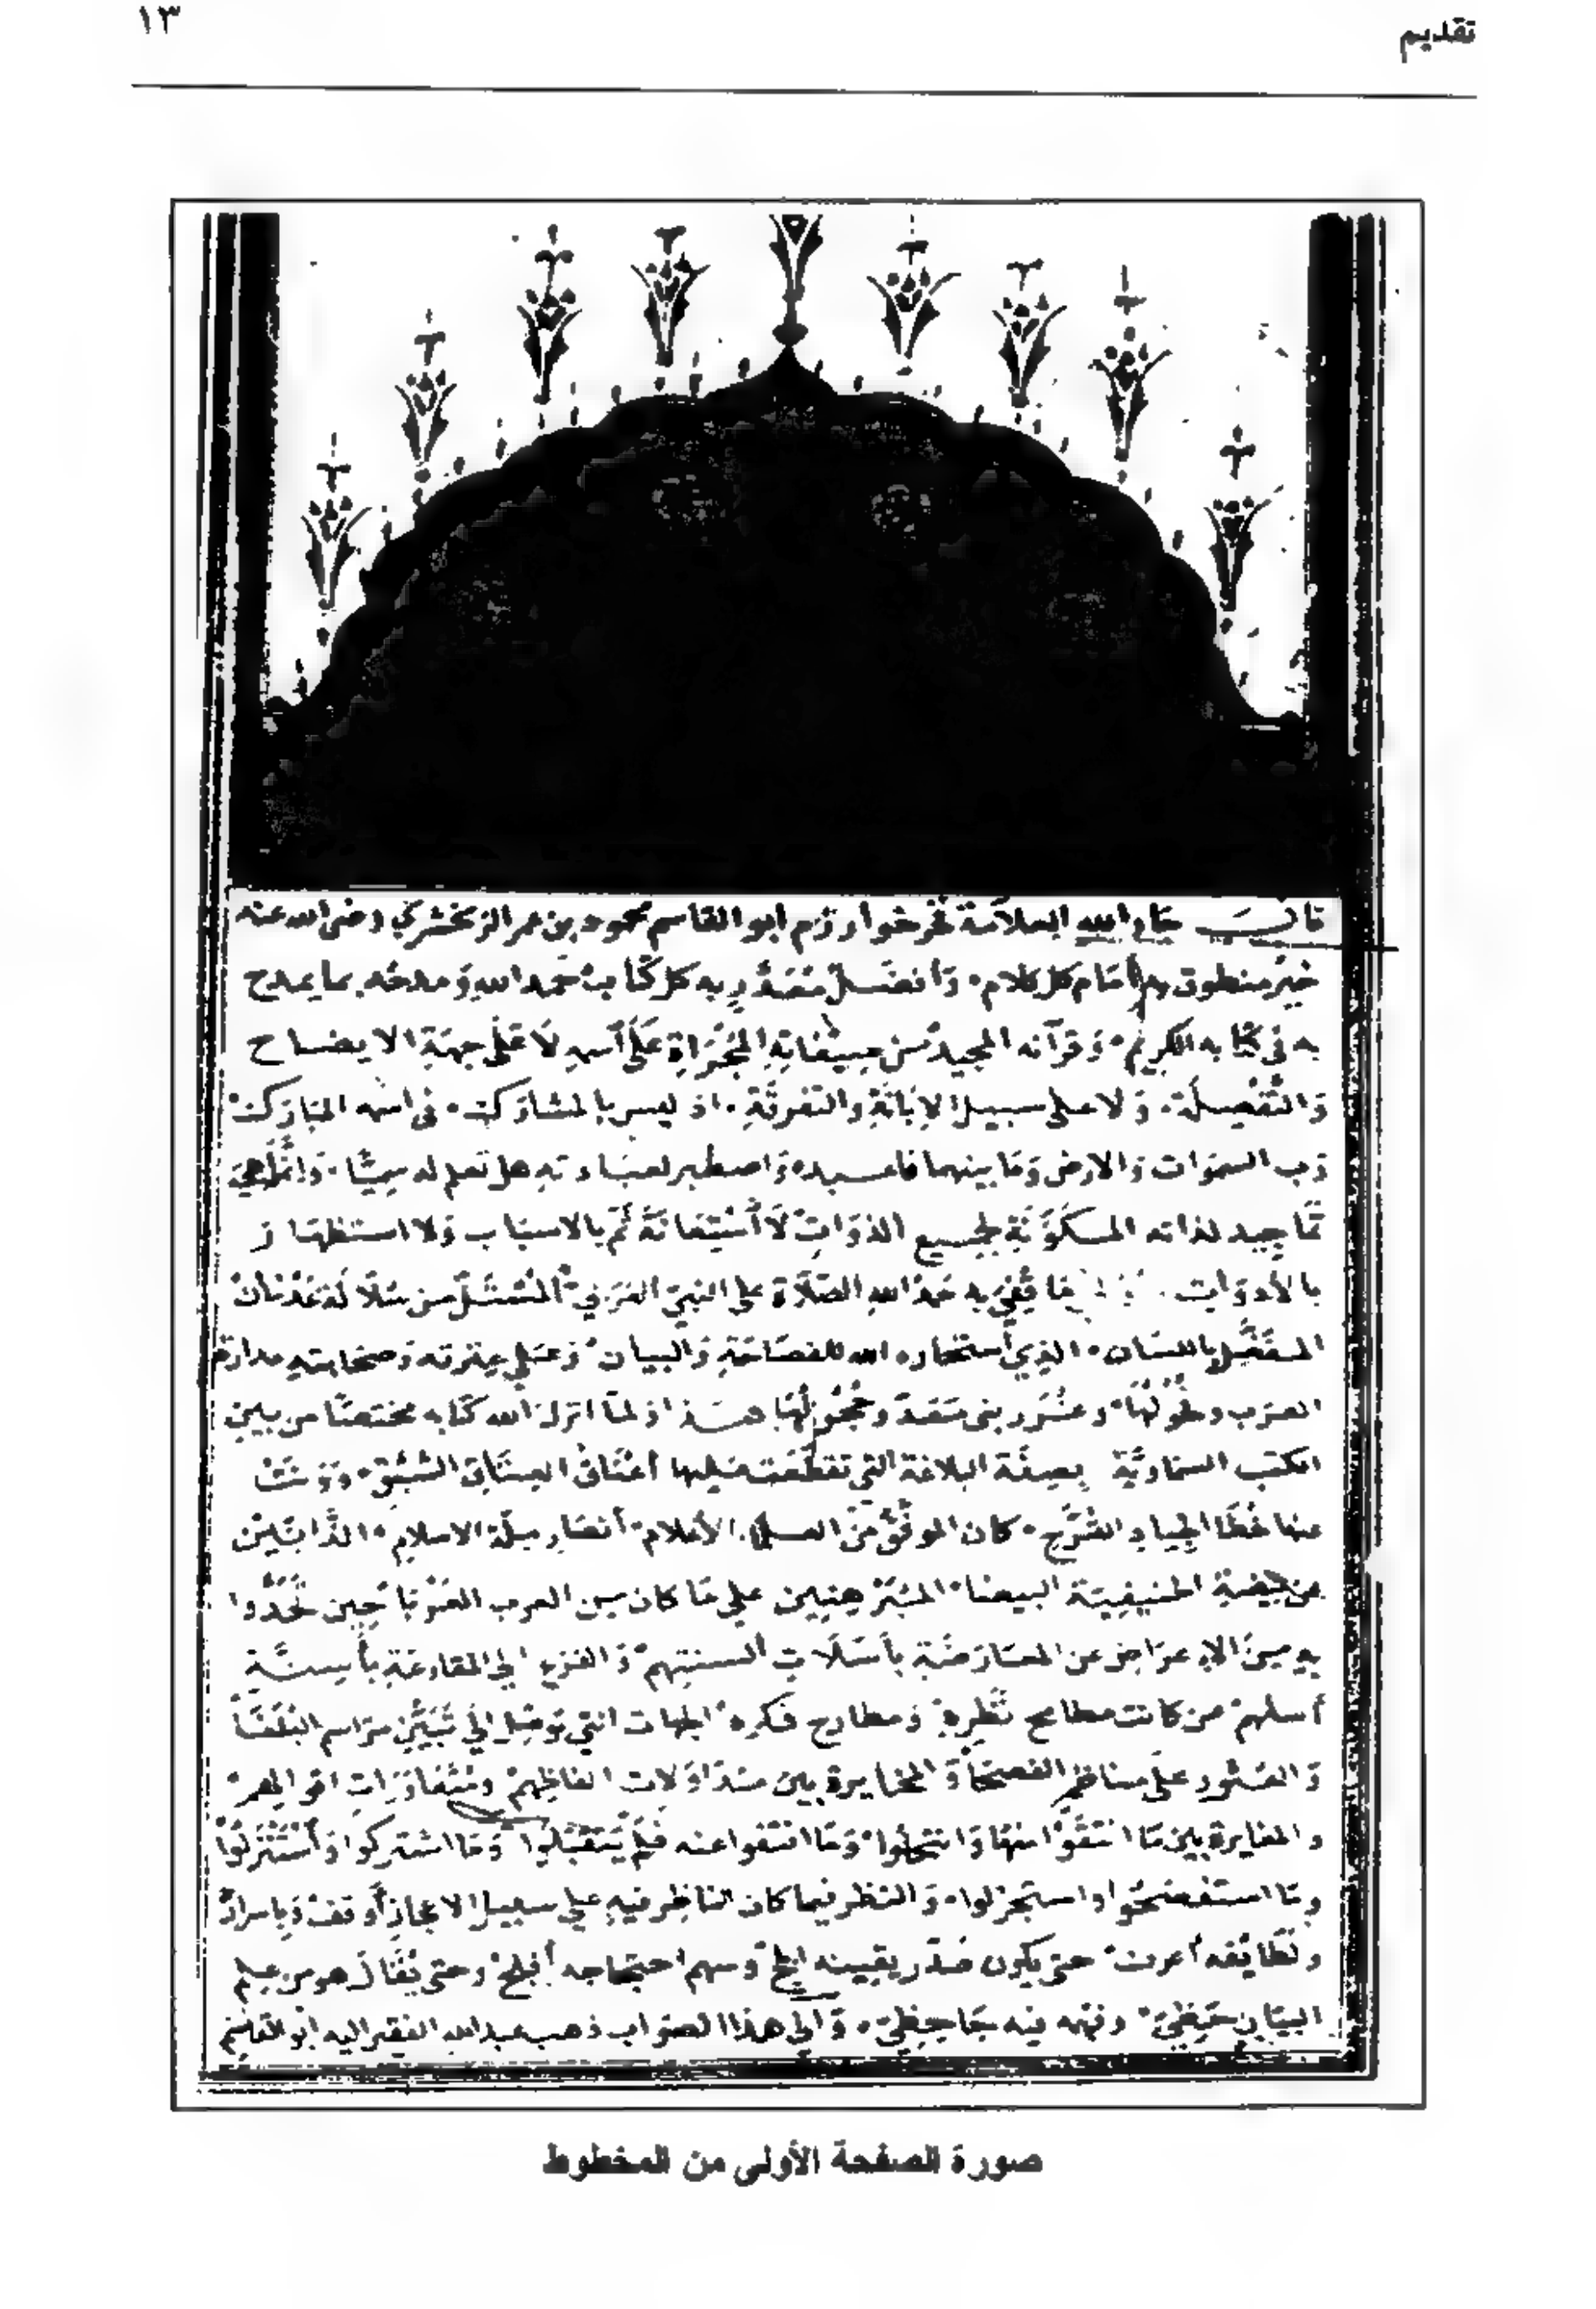 تقديم
١٣
قال جار الله العلامة فخر خوارزم ابو القاسم محمود بن عمر الزمخشري رضي الله عنه
خير منطوق به أمام كل كلام وأفضل مصدر به كل كتاب حمد الله ومدحه بما يمدح
به في كتابه الكريم وقرآنه المجيد من صفاته المجراة على اسمه لا على جهة الايضاح
والتفصلة ولا على سبيل الابانة والتفرقة اذ ليس بالمشارك في اسمه المبارك
رب السموات والارض وما بينهما فاعبده واصطبر لعبادته هل تعلم له سميا وانما هي
تماجيد لذاته المكونة لجميع الذوات لا استعانة ثم بالاسباب ولا استظهار
بالأدوات ما قفي به حمد الله الصلاة على النبي العربي المستل من سلالة عدنان
المفضل باللسان الذي استخاره الله للفصاحة والبيان وعلى عترته وصحابته مدارة
العرب وفحولها وغرر بني معد وحجولها هذا اذ لما انزل الله كتابه مختصا من بين
الكتب السماوية بصفة البلاغة التي تقطعت عليها أعناق العتاق السبق وونت
عنها خطا الجياد القرح كان الموفق من العلماء الأعلام أنصار ملة الاسلام الذابين
عن بيضة الحنيفية البيضاء المبرهنين على ما كان من العرب العرباء حين تحدوا
به من الاعراض عن المعارضة بأسلات ألسنتهم والفزع الى المقارعة بأسنة
أسلهم من كانت مطامح نظره ومطارح فكره الجهات التي توصل الى تبين مراسم البلغاء
والعثور على مناظم الفصحاء والمخايرة بين متداولات الفاظهم ومتعاورات اقوالهم
والمغايرة بين ما انتقوا منها وانتخلوا وما انتفوا عنه فلم يتقبلوا وما استركوا واستنزلوا
وما استفصحوا واستجزلوا والنظر فيما كان الناظر فيه على سبيل الاعجاز أوقف وباسراره
ولطائفه أعرف حتى يكون صدر يقينه اثلج وسهم احتجاجه أفلج وحتى يقال هو من علم
البيان حظي وفهمه فيه جاحظي والى هذا الصواب ذهب عبد الله الفقير اليه ابو القاسم
صورة الصفحة الأولى من المخطوط